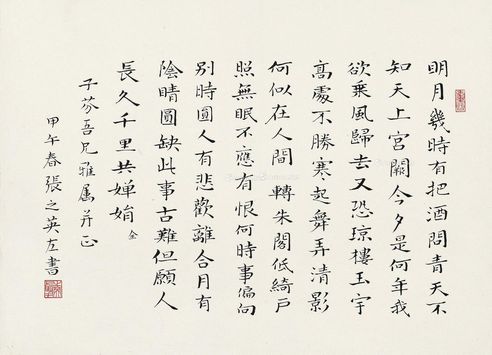 明月幾時有把酒問青天不
知天上宮闕今夕是何年我
欲乘風歸去又恐琼樓玉宇
高處不勝寒起舞弄清影
何似在人間 轉朱閣低綺戶
照無眠不應有恨何時事偏向
别時圓人有悲歡離合月有
陰晴圓缺此事古難但願人
長久千里共嬋娟
子芬吾兄雅属并正
甲午春張之英左書